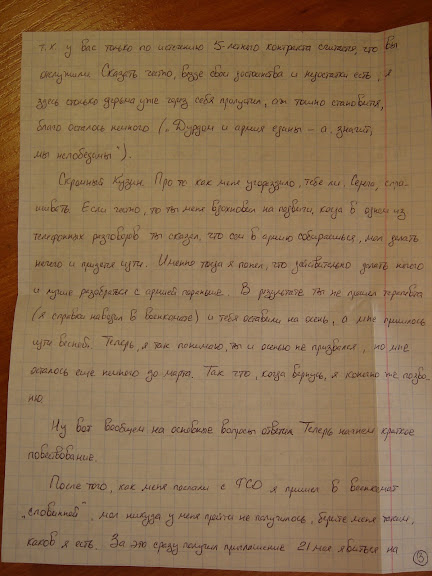 т.к. у вас только по истечению 5-летнего контракта считается, что вы
отслужили. Сказать честно, везде свои достоинства и недостатки есть, я
здесь столько дерьма уже через себя пропустил, аж тошно становится,
благо осталось немного („Дурдом и армия едины – а, значит,
мы непобедимы").
Скромный Кузин. Про то как меня угораздило, тебе ли, Серега, спра-
шивать. Если честно, то ты меня вдохновил на подвиги, когда в одном из
телефонных разговоров ты сказал, что сам в армию собираешься, мол делать
нечего и придется идти. Именно тогда я понял, что действительно делать нечего
и лучше разобраться с армией пораньше. В результате ты не прошел терапевта
(я справки наводил в военкомате) и тебя оставили на осень, а мне пришлось
идти весной. Теперь, я так понимаю, ты и осенью не призвался, но мне
осталось ещё немного до марта. Так что, когда вернусь, я конечно же позво-
ню.
Ну вот вообщем на основные вопросы ответил. Теперь начнем краткое
повествование.
После того, как меня послали с ГСО я пришел в военкомат
„с повинной", мол никуда у меня пройти не получилось, берите меня таким,
каков я есть. За это сразу получил приглашение 21 мая явиться на
3